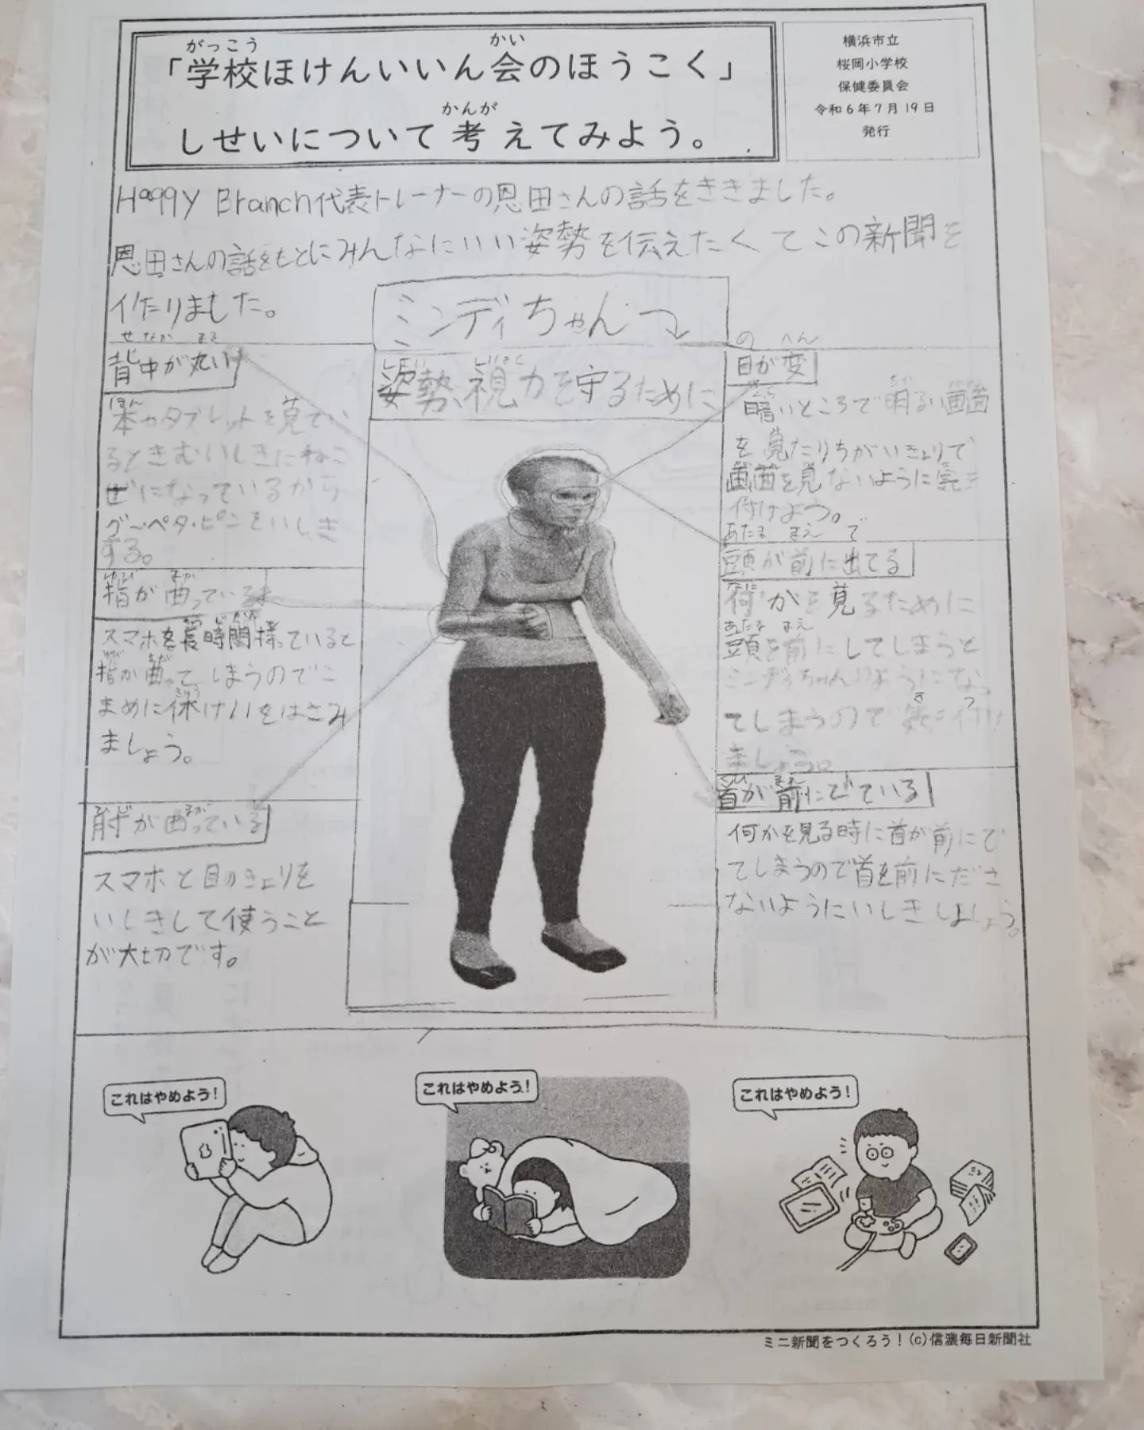 「学校ほけんいいん会のほうこく」
しせいについて考えてみよう。
横浜市立
桜岡小学校
保健委員会
令和6年7月19日
発行
Happy Branch代表トレーナーの恩田さんの話をききました。
恩田さんの話をもとにみんなにいい姿勢を伝えたくてこの新聞を
作たりました。
ミンディちゃん
姿勢、視力を守るために
背中が丸い
本やタブレットを見てい
るときむいしきにねこ
ぜになっているから
グーペタ・ピンをいしき
する。
指が曲っている
スマホを長時間様っていると
指が曲って、しまうのでこ
まめに休けいをはさみ
ましょう。
肘が曲っている
スマホと目のきょりを
いしきして使うこと
が大切です。
目が変
暗いところで明るい画面
を見たりちがいきょりで
画面を見ないように気を
付けよう。
頭が前に出てる
何かを見るために
頭を前にしてしまうと
ミンディちゃんのようになっ
てしまうので気を付け
ましょう。
首が前にでている
何かを見る時に首が前にで
てしまうので首を前にださ
ないようにいしきしましょう。
これはやめよう!
これはやめよう!
これはやめよう!
ミニ新聞をつくろう!(c)信濃毎日新聞社